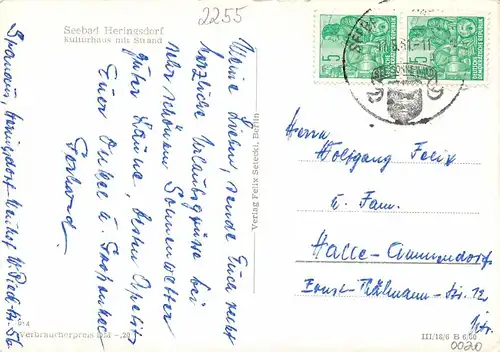 2255
Seebad Heringsdorf
Kulturhaus mit Strand
Meine Lieben, sende Euch recht
herzliche Urlaubsgrüße bei
sehr schönem Sonnenwetter
guter Laune, besten Appetit
Euer Onkel u.
Gerhard.
Heringsdorf
Verlag Felix Setecki, Berlin
914
Verbraucherpreis DM -,20
5
5
DEUTSCHE DEMOKRATISCHE REPUBLIK
Herrn
Wolfgang Felix
u. Fam.
Halle-Ammendorf
Ernst-Thälmann-Str. 12
III/18/6 B 6/60
0020